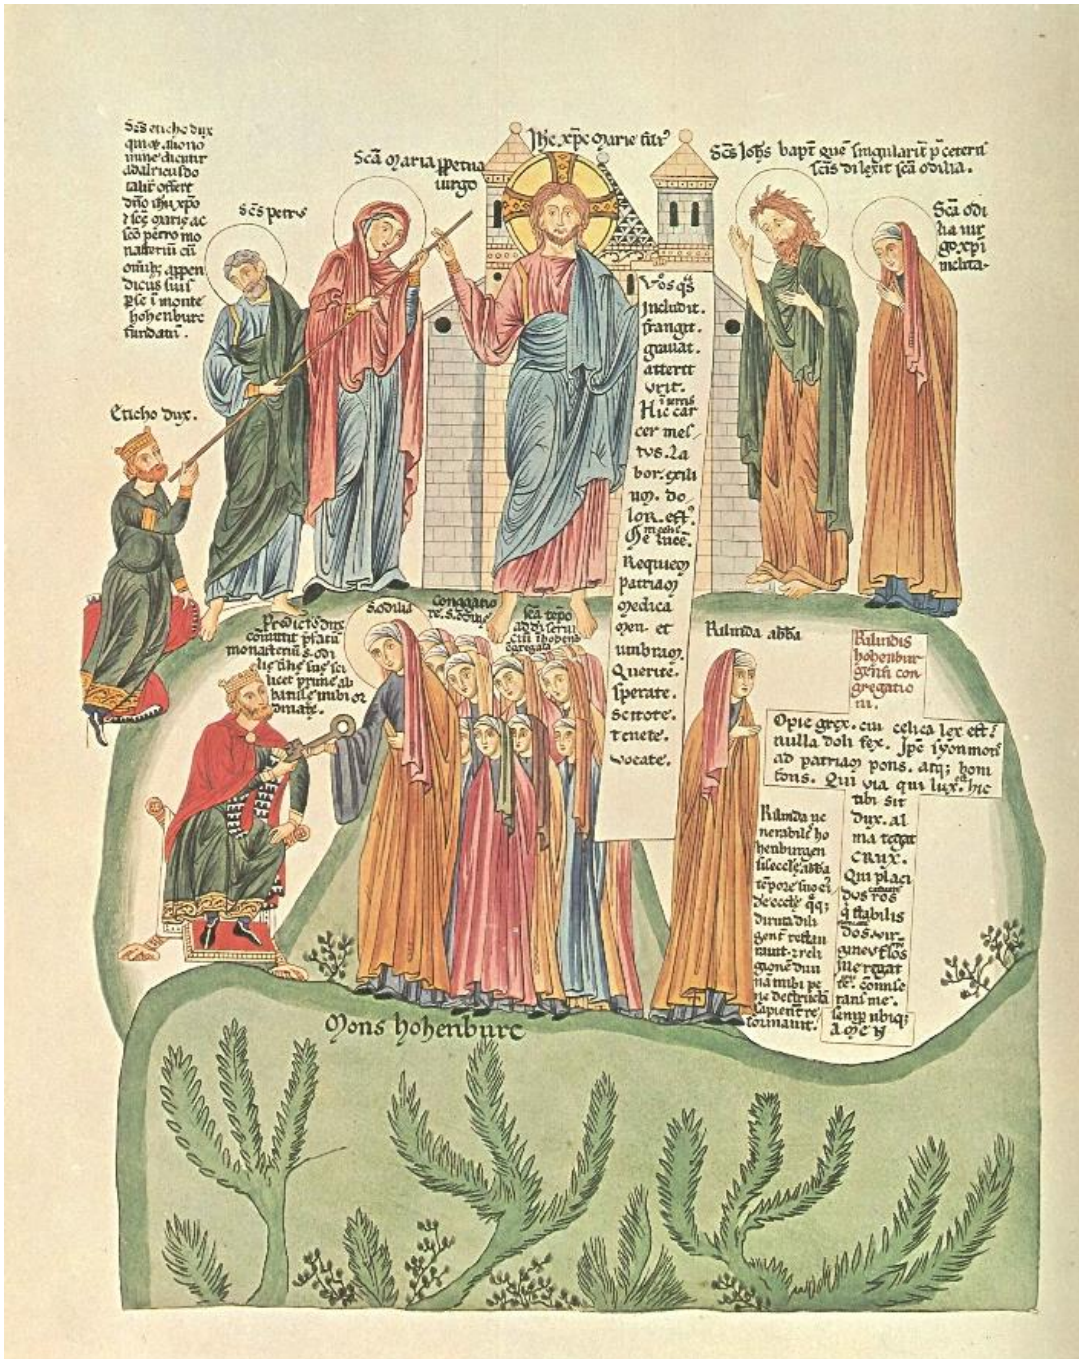 Scs eticho dux
qui & alio no
mine dicitur
adalricus do
talit offert
dno ihu xpo
& sce marie ac
sco petro mo
nasteriu cu
omib; appen
diciis suis
p se i monte
hohenburc
fundatu.
Scs petrus
Sca Maria ppetua
uirgo
Ihc xpc Marie fili
Scs Iohs bapt que singularit p ceteris
scis dilexit sca odilia.
Sca odi
lia uir
go xpi
inclita
Eticho dux.
Vos qs
Includit.
frangit.
grauat.
atterit
urit.
Hic car
cer mes
tus. La
bor. exili
um. do
lor. est.
Me
luce.
Requiem
patriam
medica
men et
umbram.
Querite.
sperate.
scitote.
tenete.
uocate.
Predict dux
comittit
monasteriu s. odi
lie
licet prime ab
batisse
S. odilia
Rilinda abba
Rilindis
hohenbur
gensis con
gregatio
ni.
O pie grex. cui celica lex est.
nulla doli fex. Ipse syon mons
ad patriam pons. atq; boni
fons. Qui via qui lux. hic
tibi sit
dux. al
ma tegat
CRUX.
Qui placi
dus ros
q stabilis
dos. uir
gineus flos
Ille regat
te.
rans me.
semp ubiq;
AMEN
Rilinda ue
nerabilis ho
henburgen
sis eccle abba
tepore suo ei
de eccle qq;
diruta dili
gent restau
rauit. & reli
gione
pe
ne destructa
sapient re
formauit.
Mons hohenburc